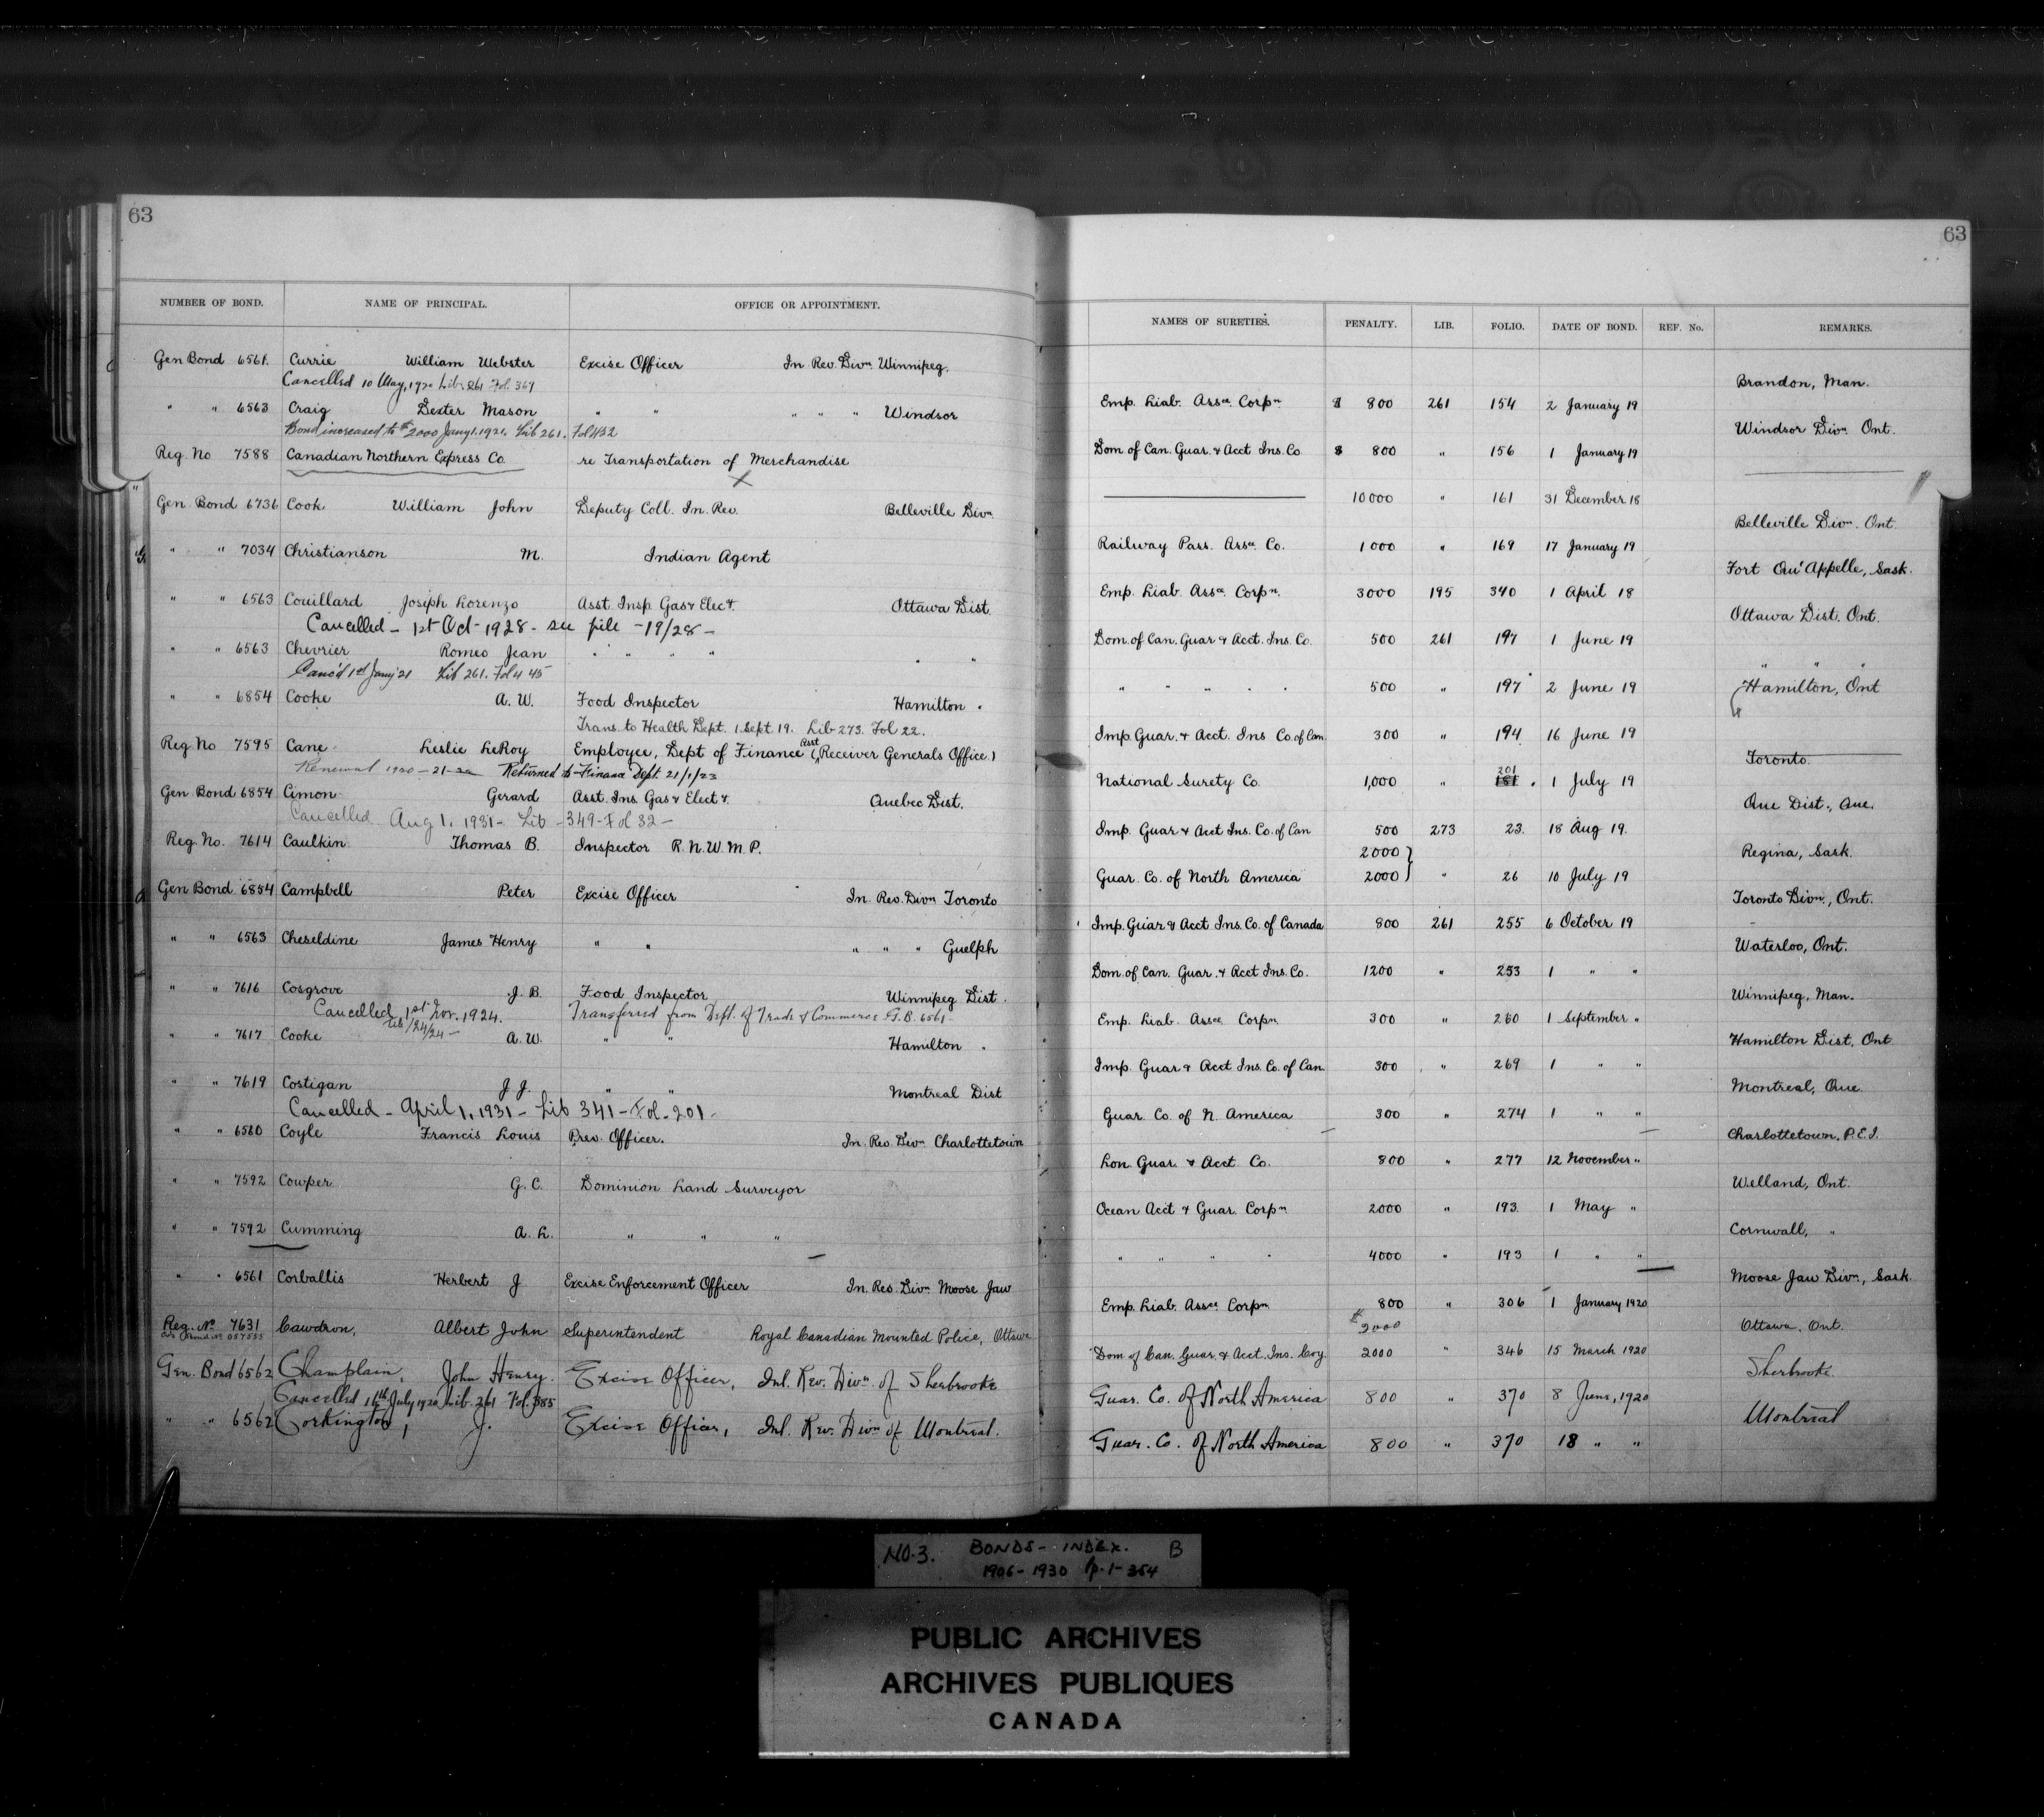 63
63
NUMBER OF BOND. NAME OF PRINCIPAL. OFFICE OR APPOINTMENT. NAMES OF SURETIES. PENALTY. LIB. FOLIO. DATE OF BOND. REF. No. REMARKS.
Gen Bond 6561. Currie William Webster Excise Officer In. Rev. Divn. Winnipeg. Emp. Liab. Assce. Corpn. $ 800 261 154 2 January 19 Brandon, Man.
Cancelled 10 May, 1920 Lib. 261 Fol. 367
" " 6563 Craig Dexter Mason " " " " " Windsor Dom of Can. Guar. & Acct Ins. Co $ 800 " 156 1 January 19 Windsor Divn. Ont.
Bond increased to $2000 Jany 1. 1921. Lib 261. Fol 432
Reg. No 7588 Canadian Northern Express Co. re Transportation of Merchandise 10000 " 161 31 December 18
X
Gen. Bond 6736 Cook William John Deputy Coll. In. Rev. Belleville Divn. Railway Pass. Assce. Co. 1000 " 169 17 January 19 Belleville Divn. Ont.
" " 7034 Christianson M. Indian Agent Emp. Liab. Assce. Corpn. 3000 195 340 1 April 18 Fort Qu'Appelle, Sask.
" " 6563 Couillard Joseph Lorenzo Asst. Insp. Gas & Elect. Ottawa Dist. Dom. of Can. Guar & Acct. Ins. Co. 500 261 197 1 June 19 Ottawa Dist. Ont.
Cancelled - 1st Oct - 1928 - see file - 19/28 -
" " 6563 Chevrier Romeo Jean " " " " " " " " " " " 500 " 197 2 June 19 " " "
Canc'd 1st Jany '21 Lib 261. Fol 445
" " 6854 Cooke A. W. Food Inspector Hamilton " Imp. Guar. & Acct. Ins Co. of Can. 300 " 194 16 June 19 Hamilton, Ont
Trans. to Health Dept. 1. Sept. 19. Lib. 273. Fol 22.
Reg. No 7595 Cane Leslie LeRoy Employee, Dept of Finance (Asst Receiver Generals Office) National Surety Co. 1,000 " 201 181 1 July 19 Toronto.
Renewal 1920 - 21 - 22 Returned to Finance Dept. 21/1/23
Gen. Bond 6854 Cimon Gerard Asst. Ins. Gas & Elect. Quebec Dist. Imp. Guar & Acct Ins. Co. of Can 500 273 23. 18 Aug 19. Que Dist., Que.
Cancelled Aug 1, 1931 - Lib - 349 - Fol 32 -
Reg. No. 7614 Caulkin Thomas B. Inspector R. N. W. M. P. Guar. Co. of North America 2000 } 2000 } " 26 10 July 19 Regina, Sask.
Gen Bond 6854 Campbell Peter Excise Officer In. Rev. Divn Toronto Imp. Guar & Acct Ins. Co. of Canada 800 261 255 6 October 19 Toronto Divn., Ont.
" " 6563 Cheseldine James Henry " " " " " Guelph Dom. of Can. Guar. & Acct Ins. Co. 1200 " 253 1 " " Waterloo, Ont.
" " 7616 Cosgrove J. B. Food Inspector Winnipeg Dist. Emp. Liab. Assce Corpn. 300 " 260 1 September " Winnipeg, Man.
Cancelled 1st Nov. 1924. Transferred from Dept. of Trade & Commerce G.B. 6561
" " 7617 Cooke A. W. " " Hamilton " Imp. Guar & Acct Ins. Co. of Can. 300 " 269 1 " " Hamilton Dist, Ont
" " 7619 Costigan J J. " " Montreal Dist Guar. Co. of N. America 300 " 274 1 " " Montreal, Que.
Cancelled - April 1, 1931 - Lib 341 - Fol - 201 -
" " 6560 Coyle Francis Louis Prev. Officer. In. Rev. Divn Charlottetown Lon. Guar. & Acct Co. 800 " 277 12 November " Charlottetown, P.E.I.
" " 7592 Cowper G. C. Dominion Land Surveyor Ocean Acct & Guar. Corpn 2000 " 193. 1 May " Welland, Ont.
" " 7592 Cumming A. L. " " " " " " " 4000 " 193 1 " " Cornwall, "
" " 6561 Corballis Herbert J Excise Enforcement Officer In. Rev. Divn. Moose Jaw Emp. Liab. Assce Corpn. 800 " 306 1 January 1920 Moose Jaw Divn., Sask.
Reg. No 7631 Cawdron, Albert John Superintendent Royal Canadian Mounted Police, Ottawa Dom of Can. Guar. & Acct. Ins. Coy. $2000 2000 " 346 15 March 1920 Ottawa, Ont.
Gen. Bond 6562 Champlain, John Henry. Excise Officer, Inl. Rev. Divn of Sherbrooke Guar. Co. of North America 800 " 370 8 June, 1920 Sherbrooke.
Cancelled 16th July 1920 Lib. 261 Fol. 385
" " 6562 Corkington, J. Excise Officer, Inl. Rev. Divn of Montreal. Guar. Co. of North America 800 " 370 18 " " Montreal
NO. 3. BONDS - INDEX. B
1906 - 1930 p. 1 - 354
PUBLIC ARCHIVES
ARCHIVES PUBLIQUES
CANADA